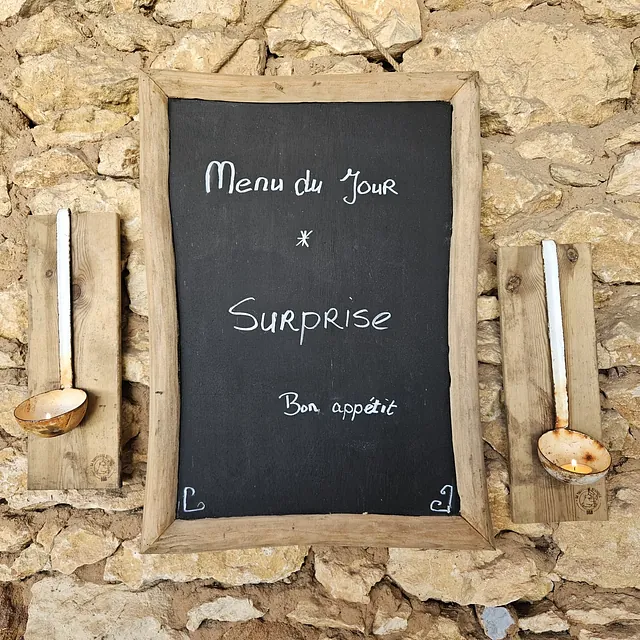 Menu du Jour
*
Surprise
Bon appétit